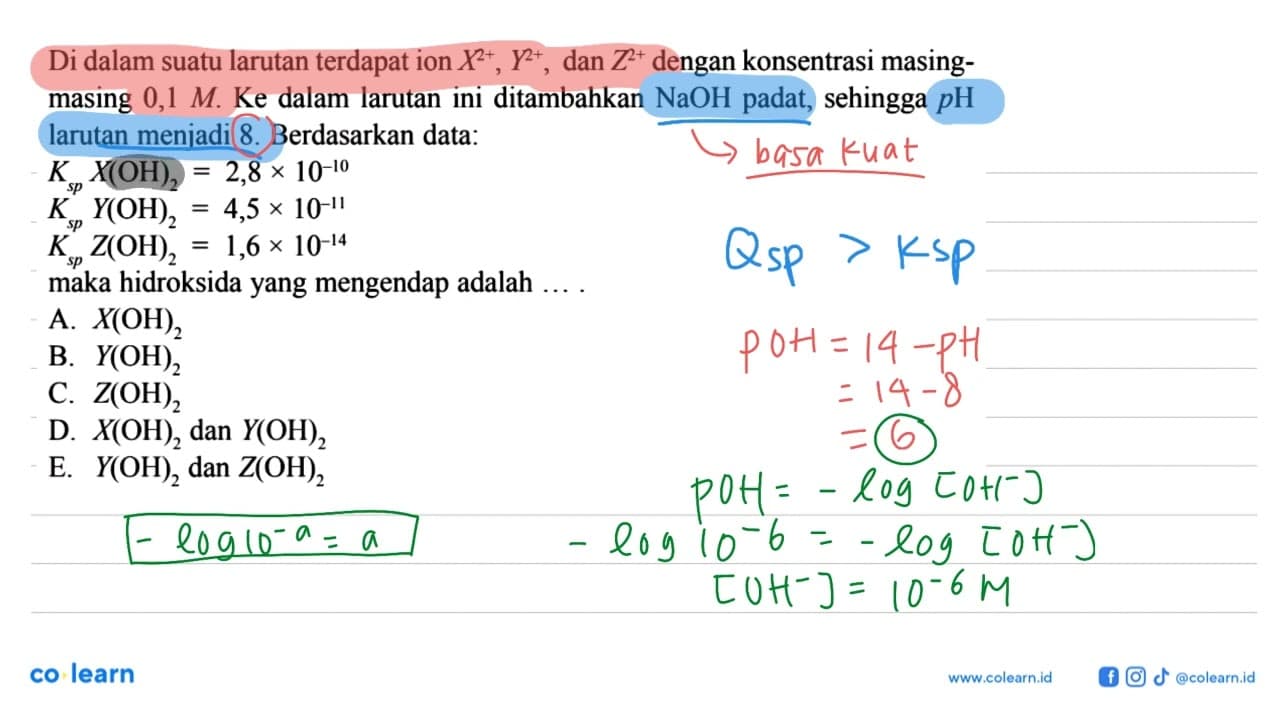 Di dalam suatu larutan terdapat ion X²⁺, Y²⁺, dan Z²⁺ dengan konsentrasi masing-
masing 0,1 M. Ke dalam larutan ini ditambahkan NaOH padat, sehingga pH
larutan menjadi 8. Berdasarkan data:
→ basa kuat
K_sp X(OH)₂ = 2,8 × 10⁻¹⁰
K_sp Y(OH)₂ = 4,5 × 10⁻¹¹
K_sp Z(OH)₂ = 1,6 × 10⁻¹⁴
maka hidroksida yang mengendap adalah ... .
A. X(OH)₂
B. Y(OH)₂
C. Z(OH)₂
D. X(OH)₂ dan Y(OH)₂
E. Y(OH)₂ dan Z(OH)₂
Qsp > Ksp
pOH = 14 - pH
= 14 - 8
= 6
pOH = - log [OH⁻]
- log 10⁻ᵃ = a
- log 10⁻⁶ = - log [OH⁻]
[OH⁻] = 10⁻⁶ M
co learn
www.colearn.id
@colearn.id